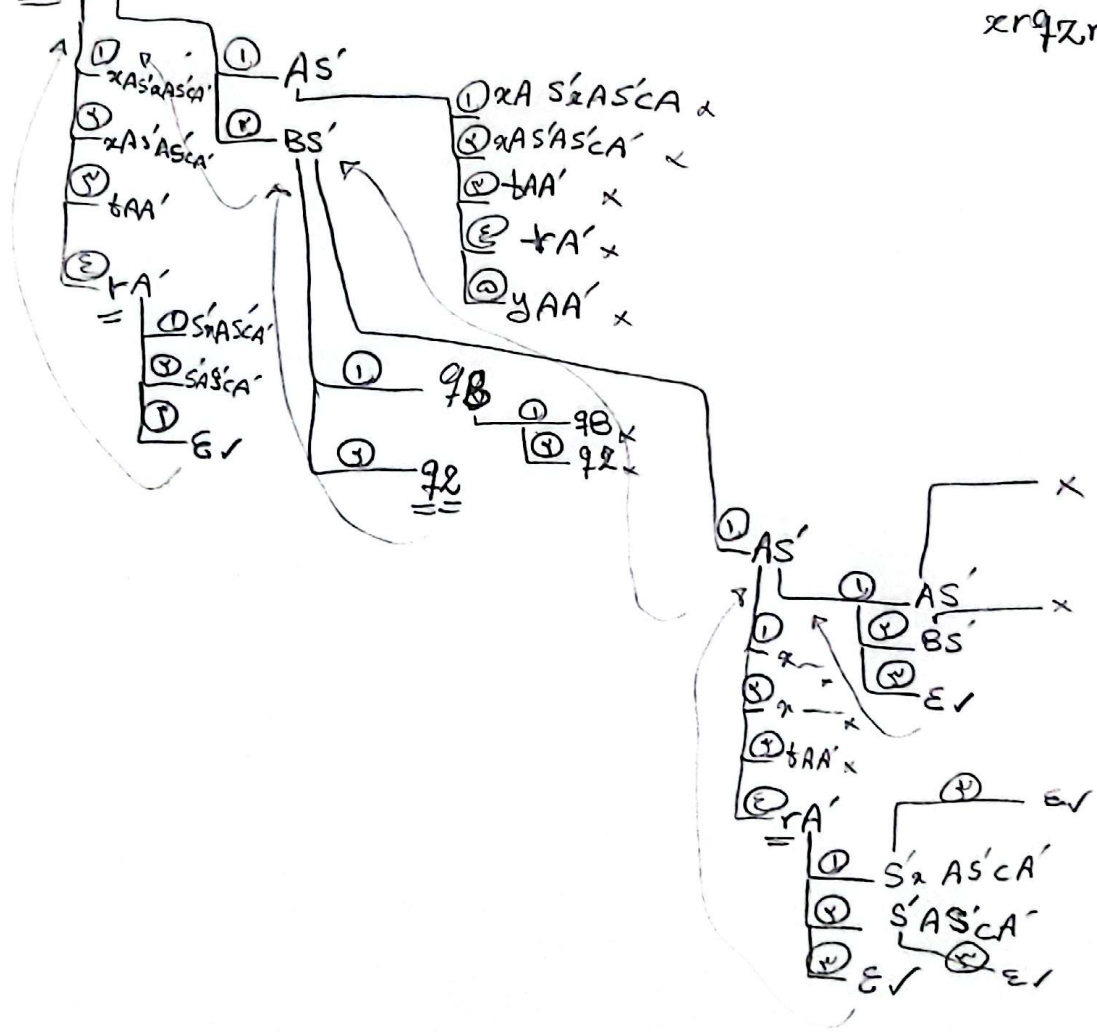 xrqzr
① xAS'xAS'cA'
② xAS'AS'cA'
③ tAA'
④ rA'
① S'xAS'cA'
② S'AS'cA'
③ ε✓
① AS'
② BS'
① xA S'xAS'cA ×
② xAS'AS'cA' ×
③ tAA' ×
④ rA' ×
⑤ yAA' ×
① qB
① qB ×
② qz ×
② qz
① AS'
① x—
② x— ×
③ tAA' ×
④ rA'
① AS'
×
② BS'
×
③ ε✓
① S'x AS'cA'
③ ε✓
② S'AS'cA'
③ ε✓
③ ε✓